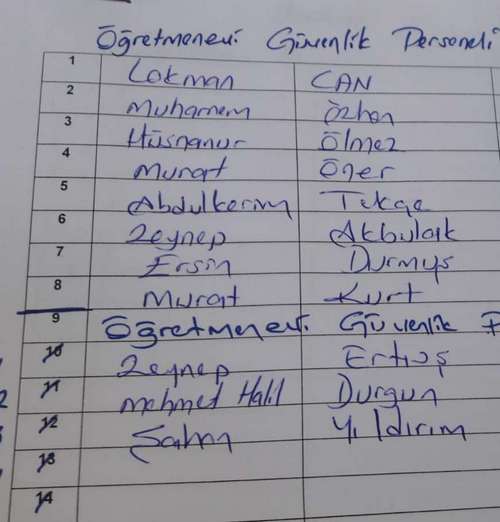 Öğretmenevi Güvenlik Personeli
1 Lokman CAN
2 Muharrem Özhan
3 Hüsnanur Ölmez
4 Murat Öner
5 Abdulkerim Tekçe
6 Zeynep Akbulak
7 Ersin Durmuş
8 Murat Kurt
9 Öğretmenevi Güvenlik P
10 Zeynep Ertuş
11 Mehmet Halil Durgun
12 Şahin Yıldırım
13
14